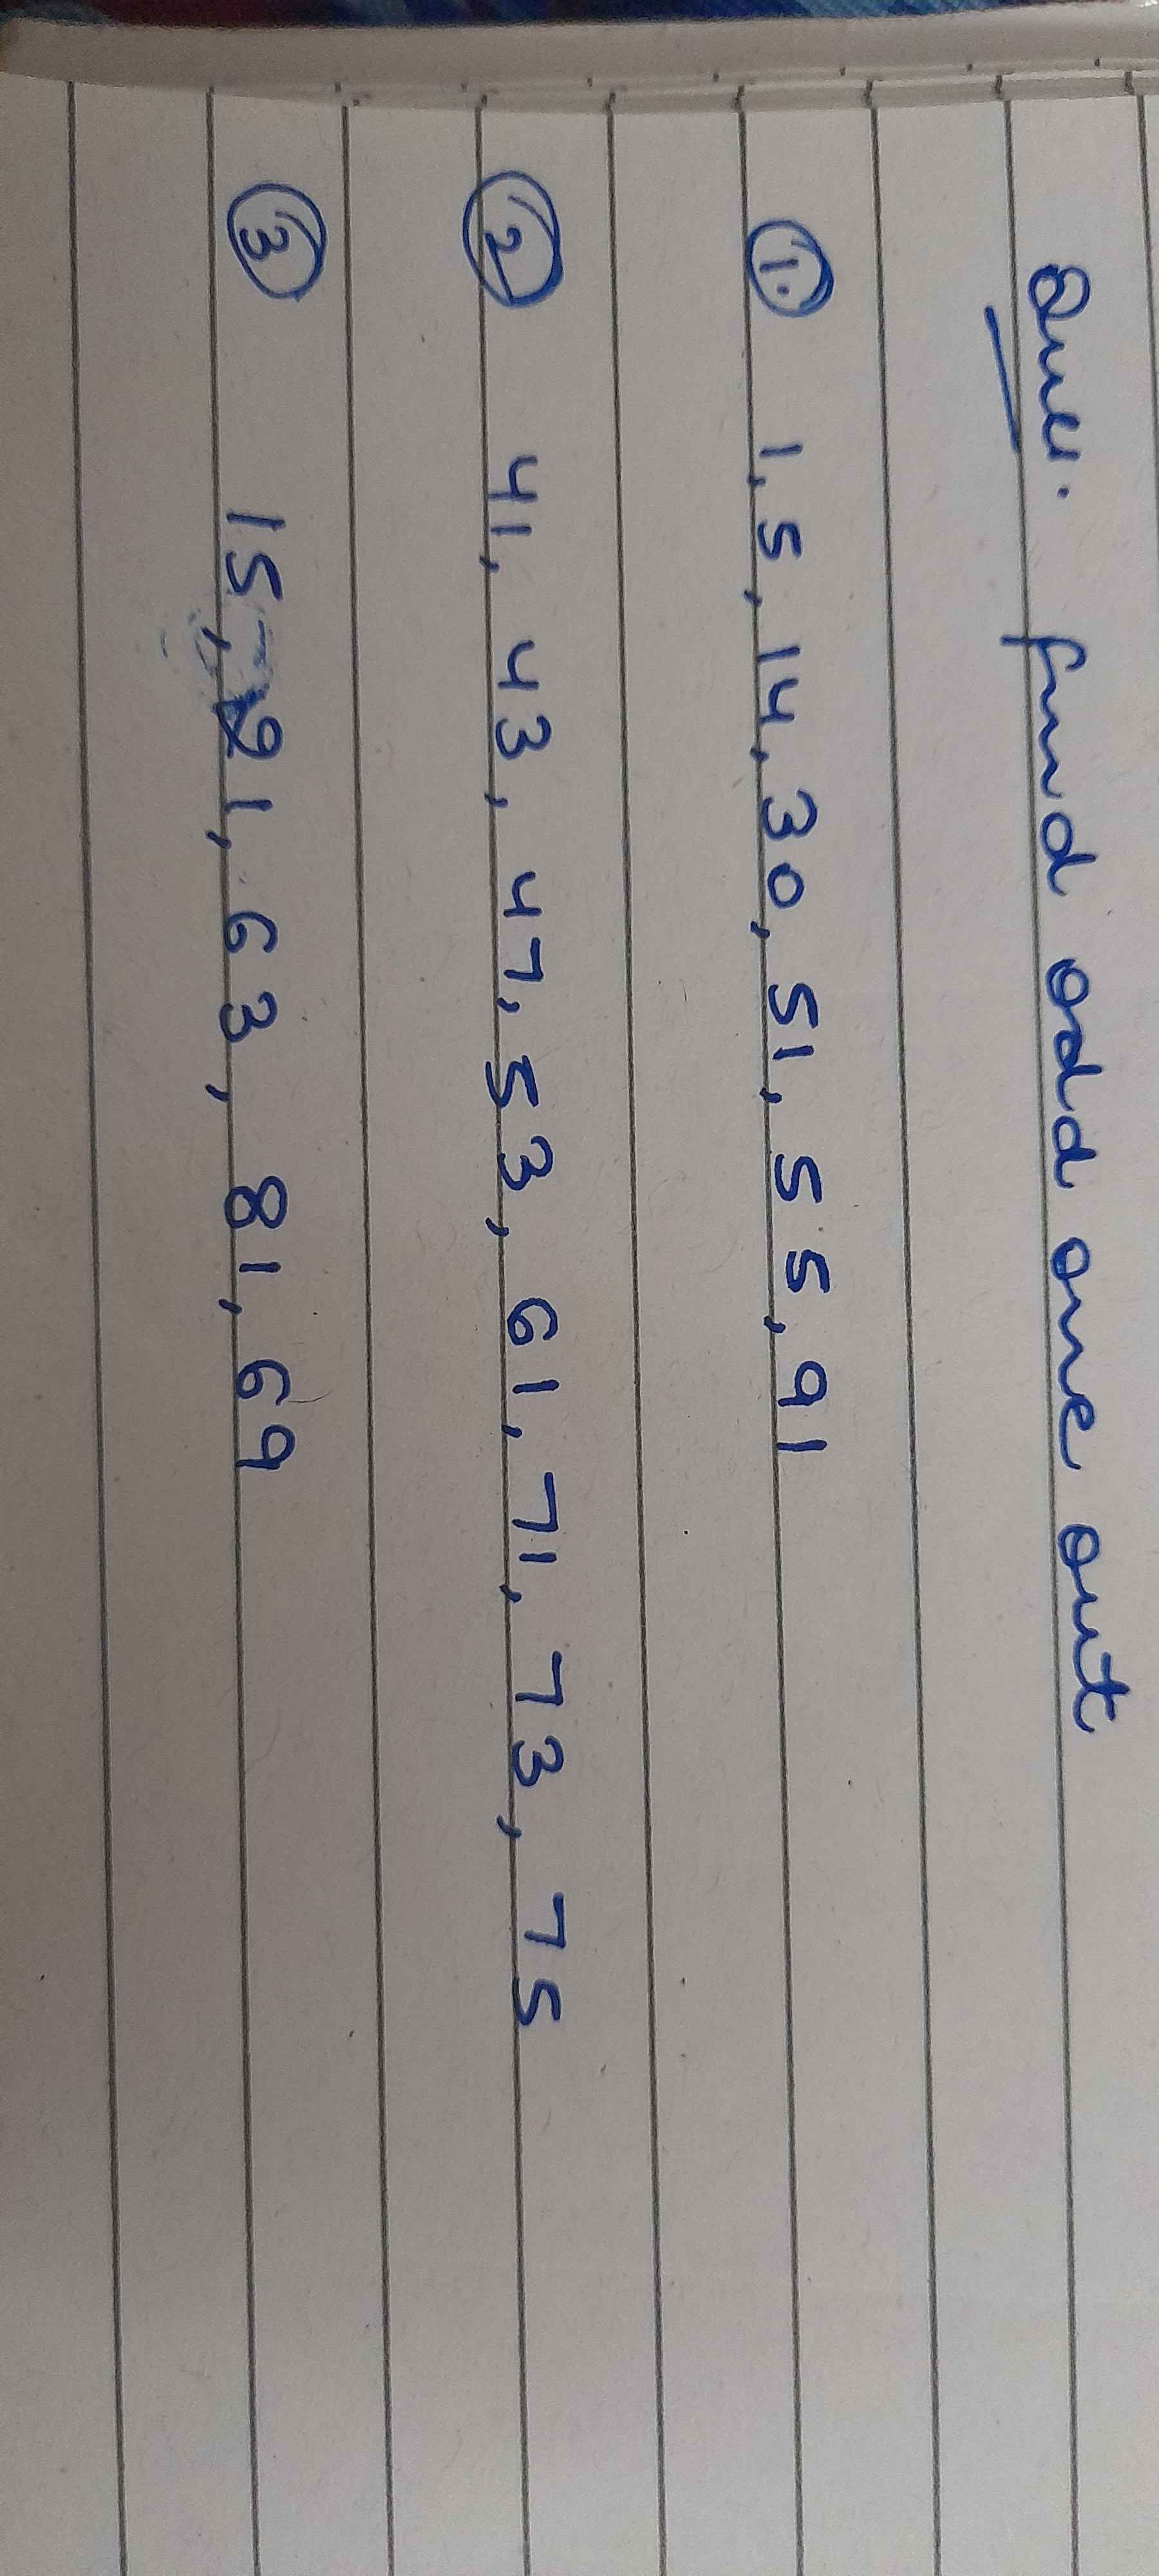 Que. find odd one out
1. 1, 5, 14, 30, 51, 55, 91
2 41, 43, 47, 53, 61, 71, 73, 75
3 15, 21, 63, 81, 69